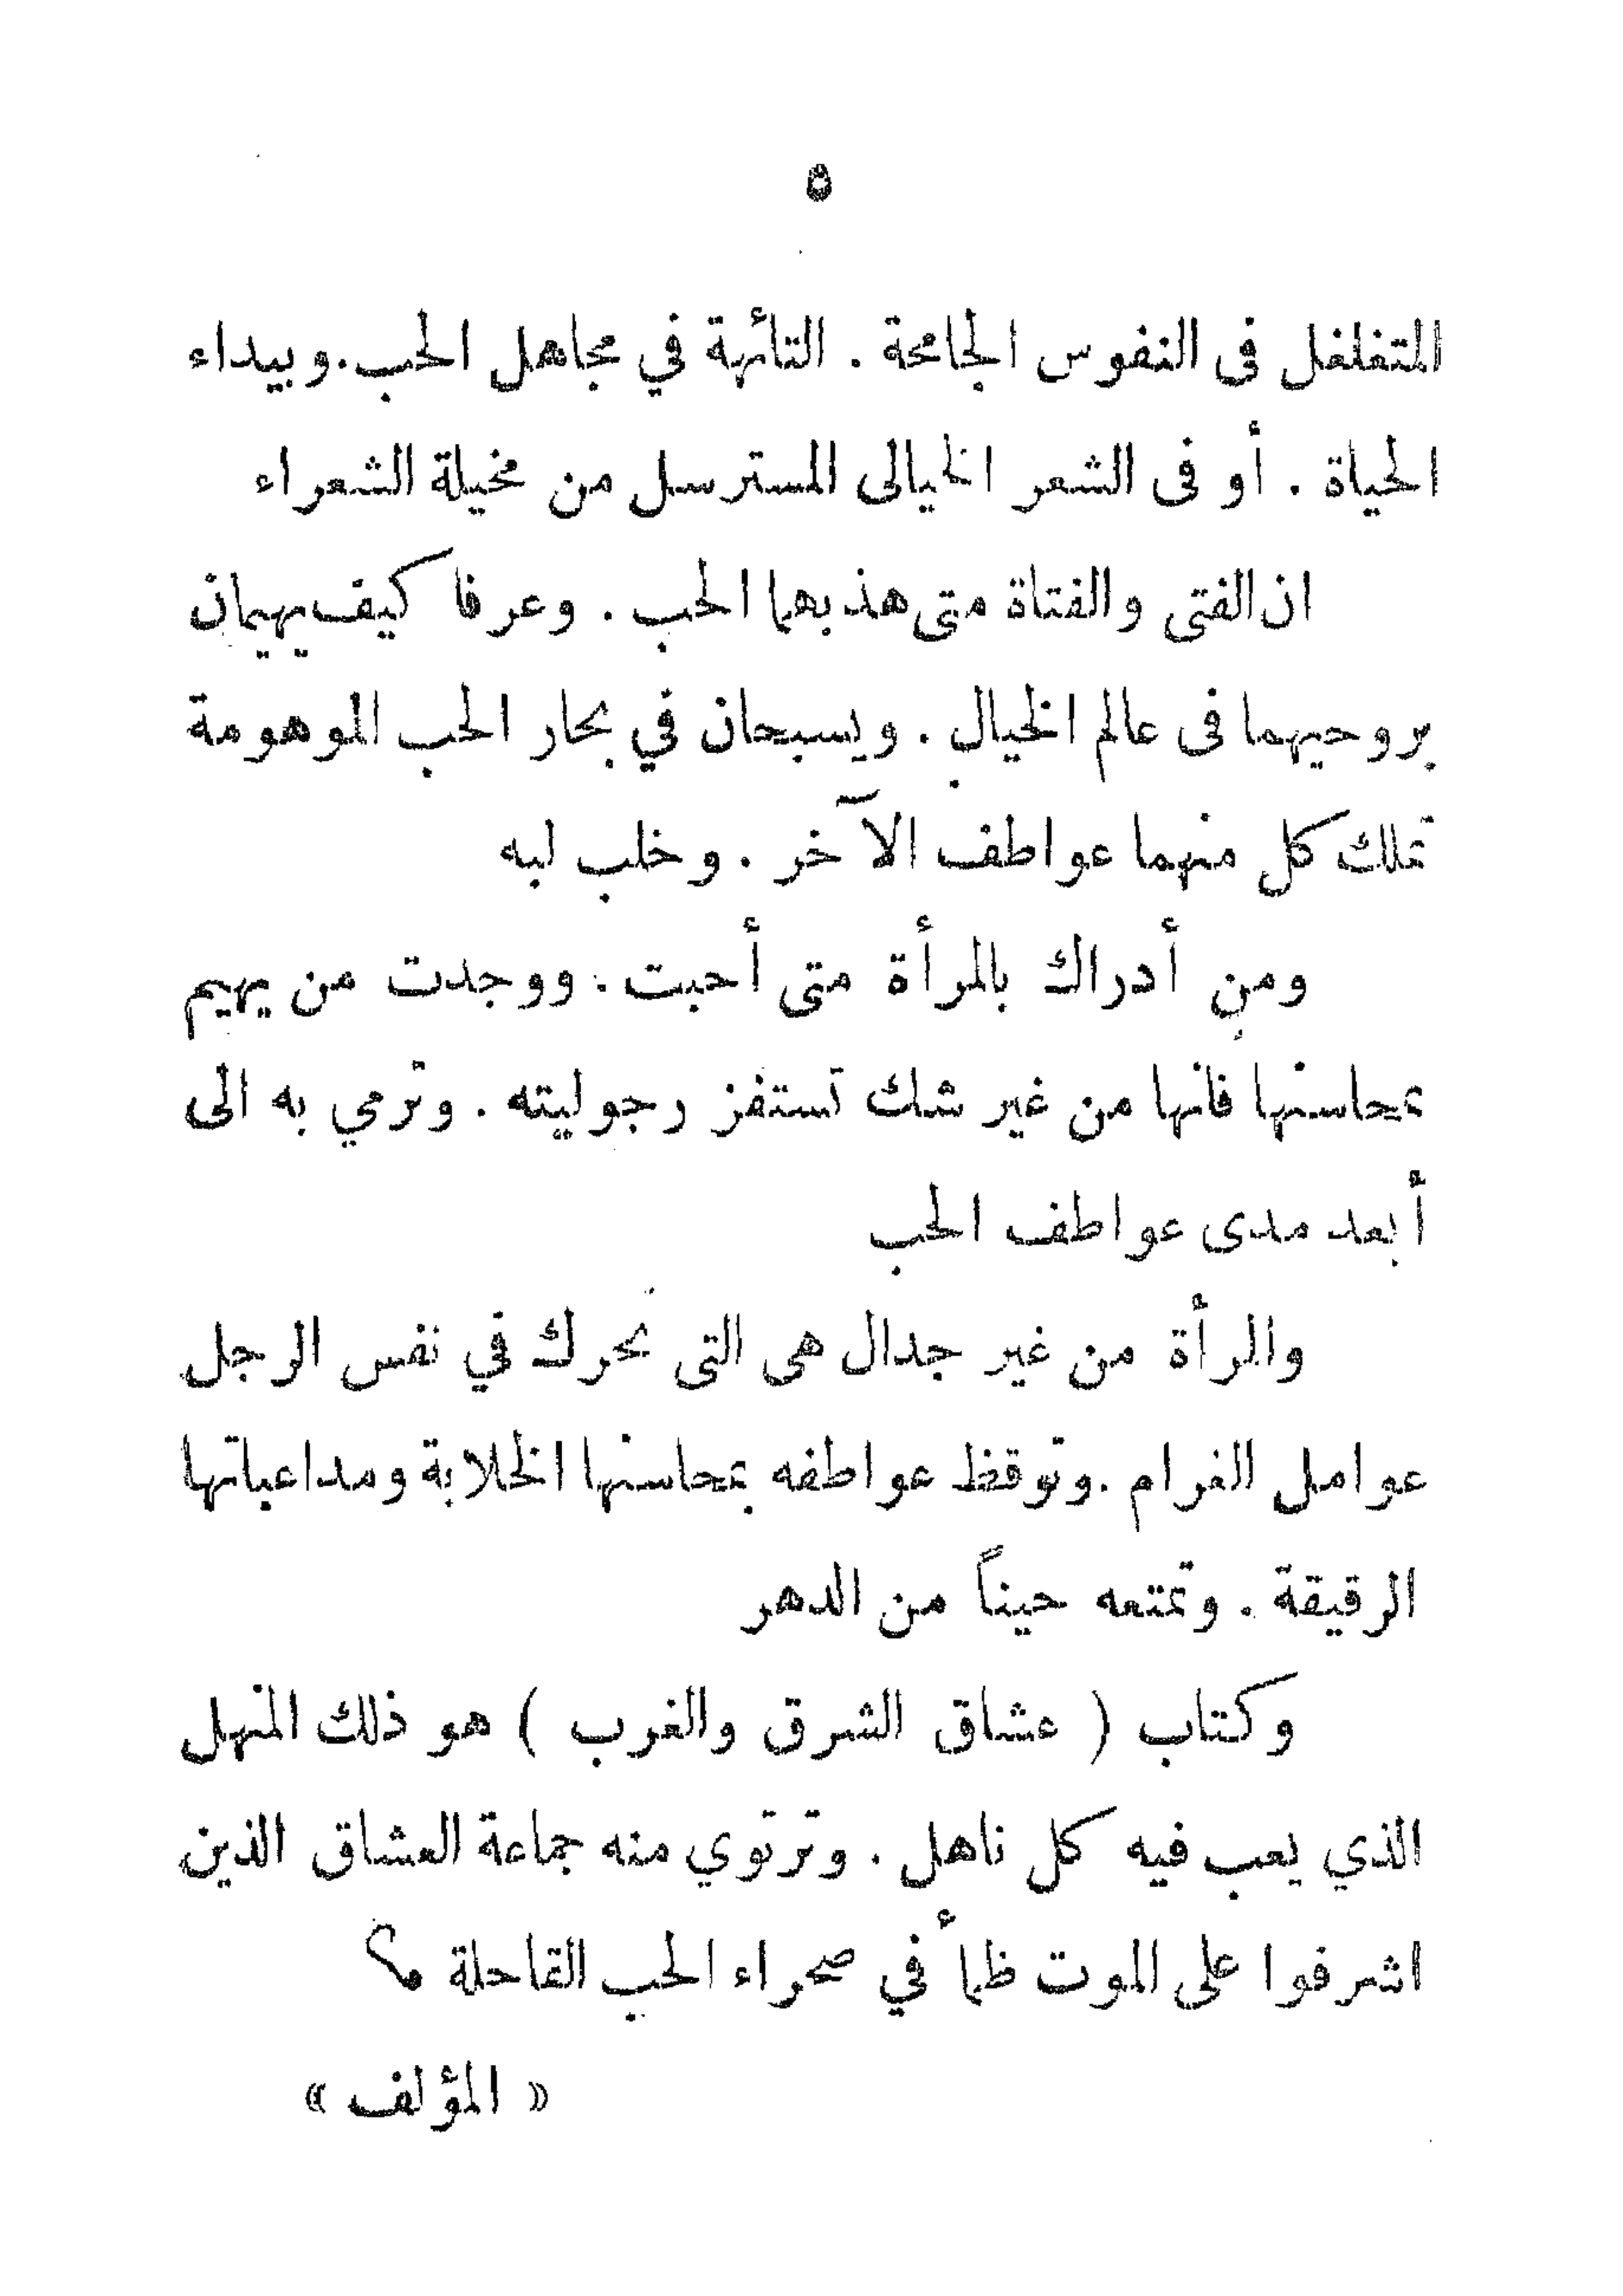 ٥
المتغلغل فى النفوس الجامحة . التائهة في مجاهل الحب . وبيداء
الحياة . أو فى الشعر الخيالى المسترسل من مخيلة الشعراء
ان الفتى والفتاة متى هذبهما الحب . وعرفا كيف يهيمان
بروحيهما فى عالم الخيال . ويسبحان في بحار الحب الموهومة
تملك كل منهما عواطف الآخر . وخلب لبه
ومن أدراك بالمرأة متى أحبت . ووجدت من يهيم
بمحاسنها فانها من غير شك تستفز رجوليته . وترمي به الى
أبعد مدى عواطف الحب
والمرأة من غير جدال هى التى تحرك في نفس الرجل
عوامل الغرام . وتوقظ عواطفه بمحاسنها الخلابة ومداعباتها
الرقيقة . وتمتعه حيناً من الدهر
وكتاب ( عشاق الشرق والغرب ) هو ذلك المنهل
الذي يعب فيه كل ناهل . وترتوي منه جماعة العشاق الذين
اشرفوا على الموت ظمأ في صحراء الحب القاحلة
« المؤلف »